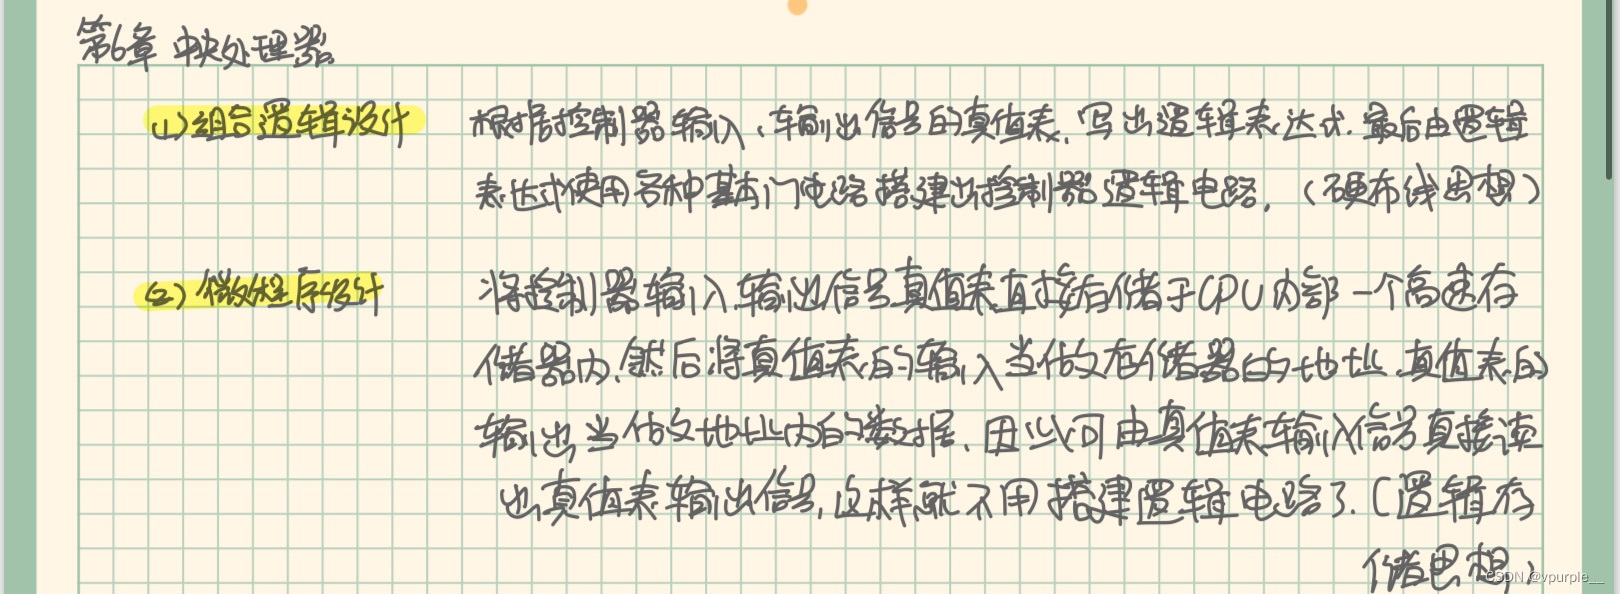 第6章 中央处理器
(1)组合逻辑设计 根据控制器输入、输出信号的真值表,写出逻辑表达式.最后由逻辑
表达式使用各种基本门电路搭建出控制器逻辑电路,(硬布线思想)
(2)微程序设计 将控制器输入、输出信号真值表直接存储于CPU内部一个高速存
储器内,然后将真值表的输入当做存储器的地址,真值表的
输出当做地址内的数据,因此可由真值表输入信号直接读
出真值表输出信号,这样就不用搭建逻辑电路了.(逻辑存
储思想)
CSDN @vpurple__